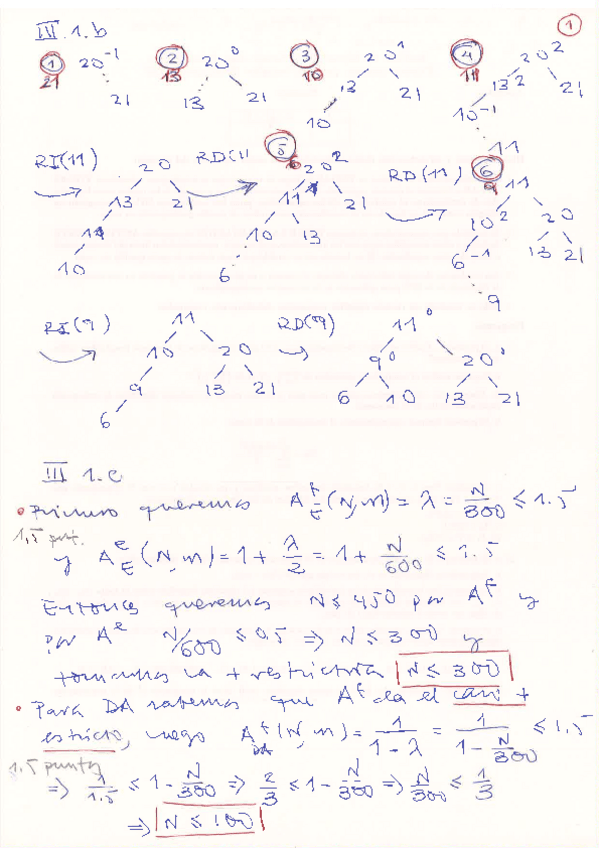 1
III 1.b
1 20^-1 2 20^0 3 20^1 4 20^2
21 13 10 11
21 13 21 13 21 13^2 21
10 10^-1
11
RI(11) 20 RD(11 5 20^2 RD(11) 6 11
6 9
13 21 11 21 10^2 20
11 10 13 6^-1 13 21
10 6 9
RI(9) 11 RD(9) 11^0
10 20 9^0 20^0
9 13 21 6 10 13 21
6
III 1.c
• Primero queremos A_E^f(N,m) = λ = N/300 ≤ 1.5
1,5 pnt.
y A_E^e(N,m) = 1 + λ/2 = 1 + N/600 ≤ 1.5
Entonces queremos N ≤ 450 por A^f y
por A^e N/600 ≤ 0.5 ⇒ N ≤ 300 y
tomamos la + restrictiva N ≤ 300
• Para DA sabemos que A^f da el caso +
estricto, luego A_DA^f(N,m) = 1/(1-λ) = 1/(1-N/300) ≤ 1.5
1.5 puntos
⇒ 1/1.5 ≤ 1-N/300 ⇒ 2/3 ≤ 1-N/300 ⇒ N/300 ≤ 1/3
⇒ N ≤ 100